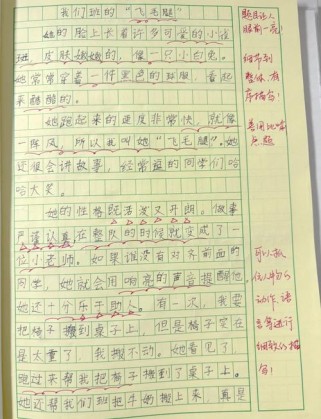 我们班的“飞毛腿”
她的脸上长着许多可爱的小斑
，皮肤
的，像一只小白兔。
她常常穿着一件黑色的
服，看起
来酷酷的。
她跑起来的速度非常快，就像
一阵风，所以我叫她“飞毛腿”。她
还很会讲故事，经常逗的同学们哈
哈大笑。
她的性格既活泼又开朗，做事
严谨认真，在整队的时候就变成了一
位小老师。如果谁没有对齐前面的
同学，她就会用响亮的声音提醒他。
她还十分乐于助人。有一次，我要
把椅子搬到桌子上，但是椅子实在
是太重了，我搬不动。她看见了，
跑过来帮我把椅子搬到了桌子上。
她还帮我们班把牛奶搬上来，真是
题目让人
眼前一亮！
细节到
整体，有
序描写！
运用比喻
点题
可以抓
住人物的
动作、语
言等进行
细致的描
写！